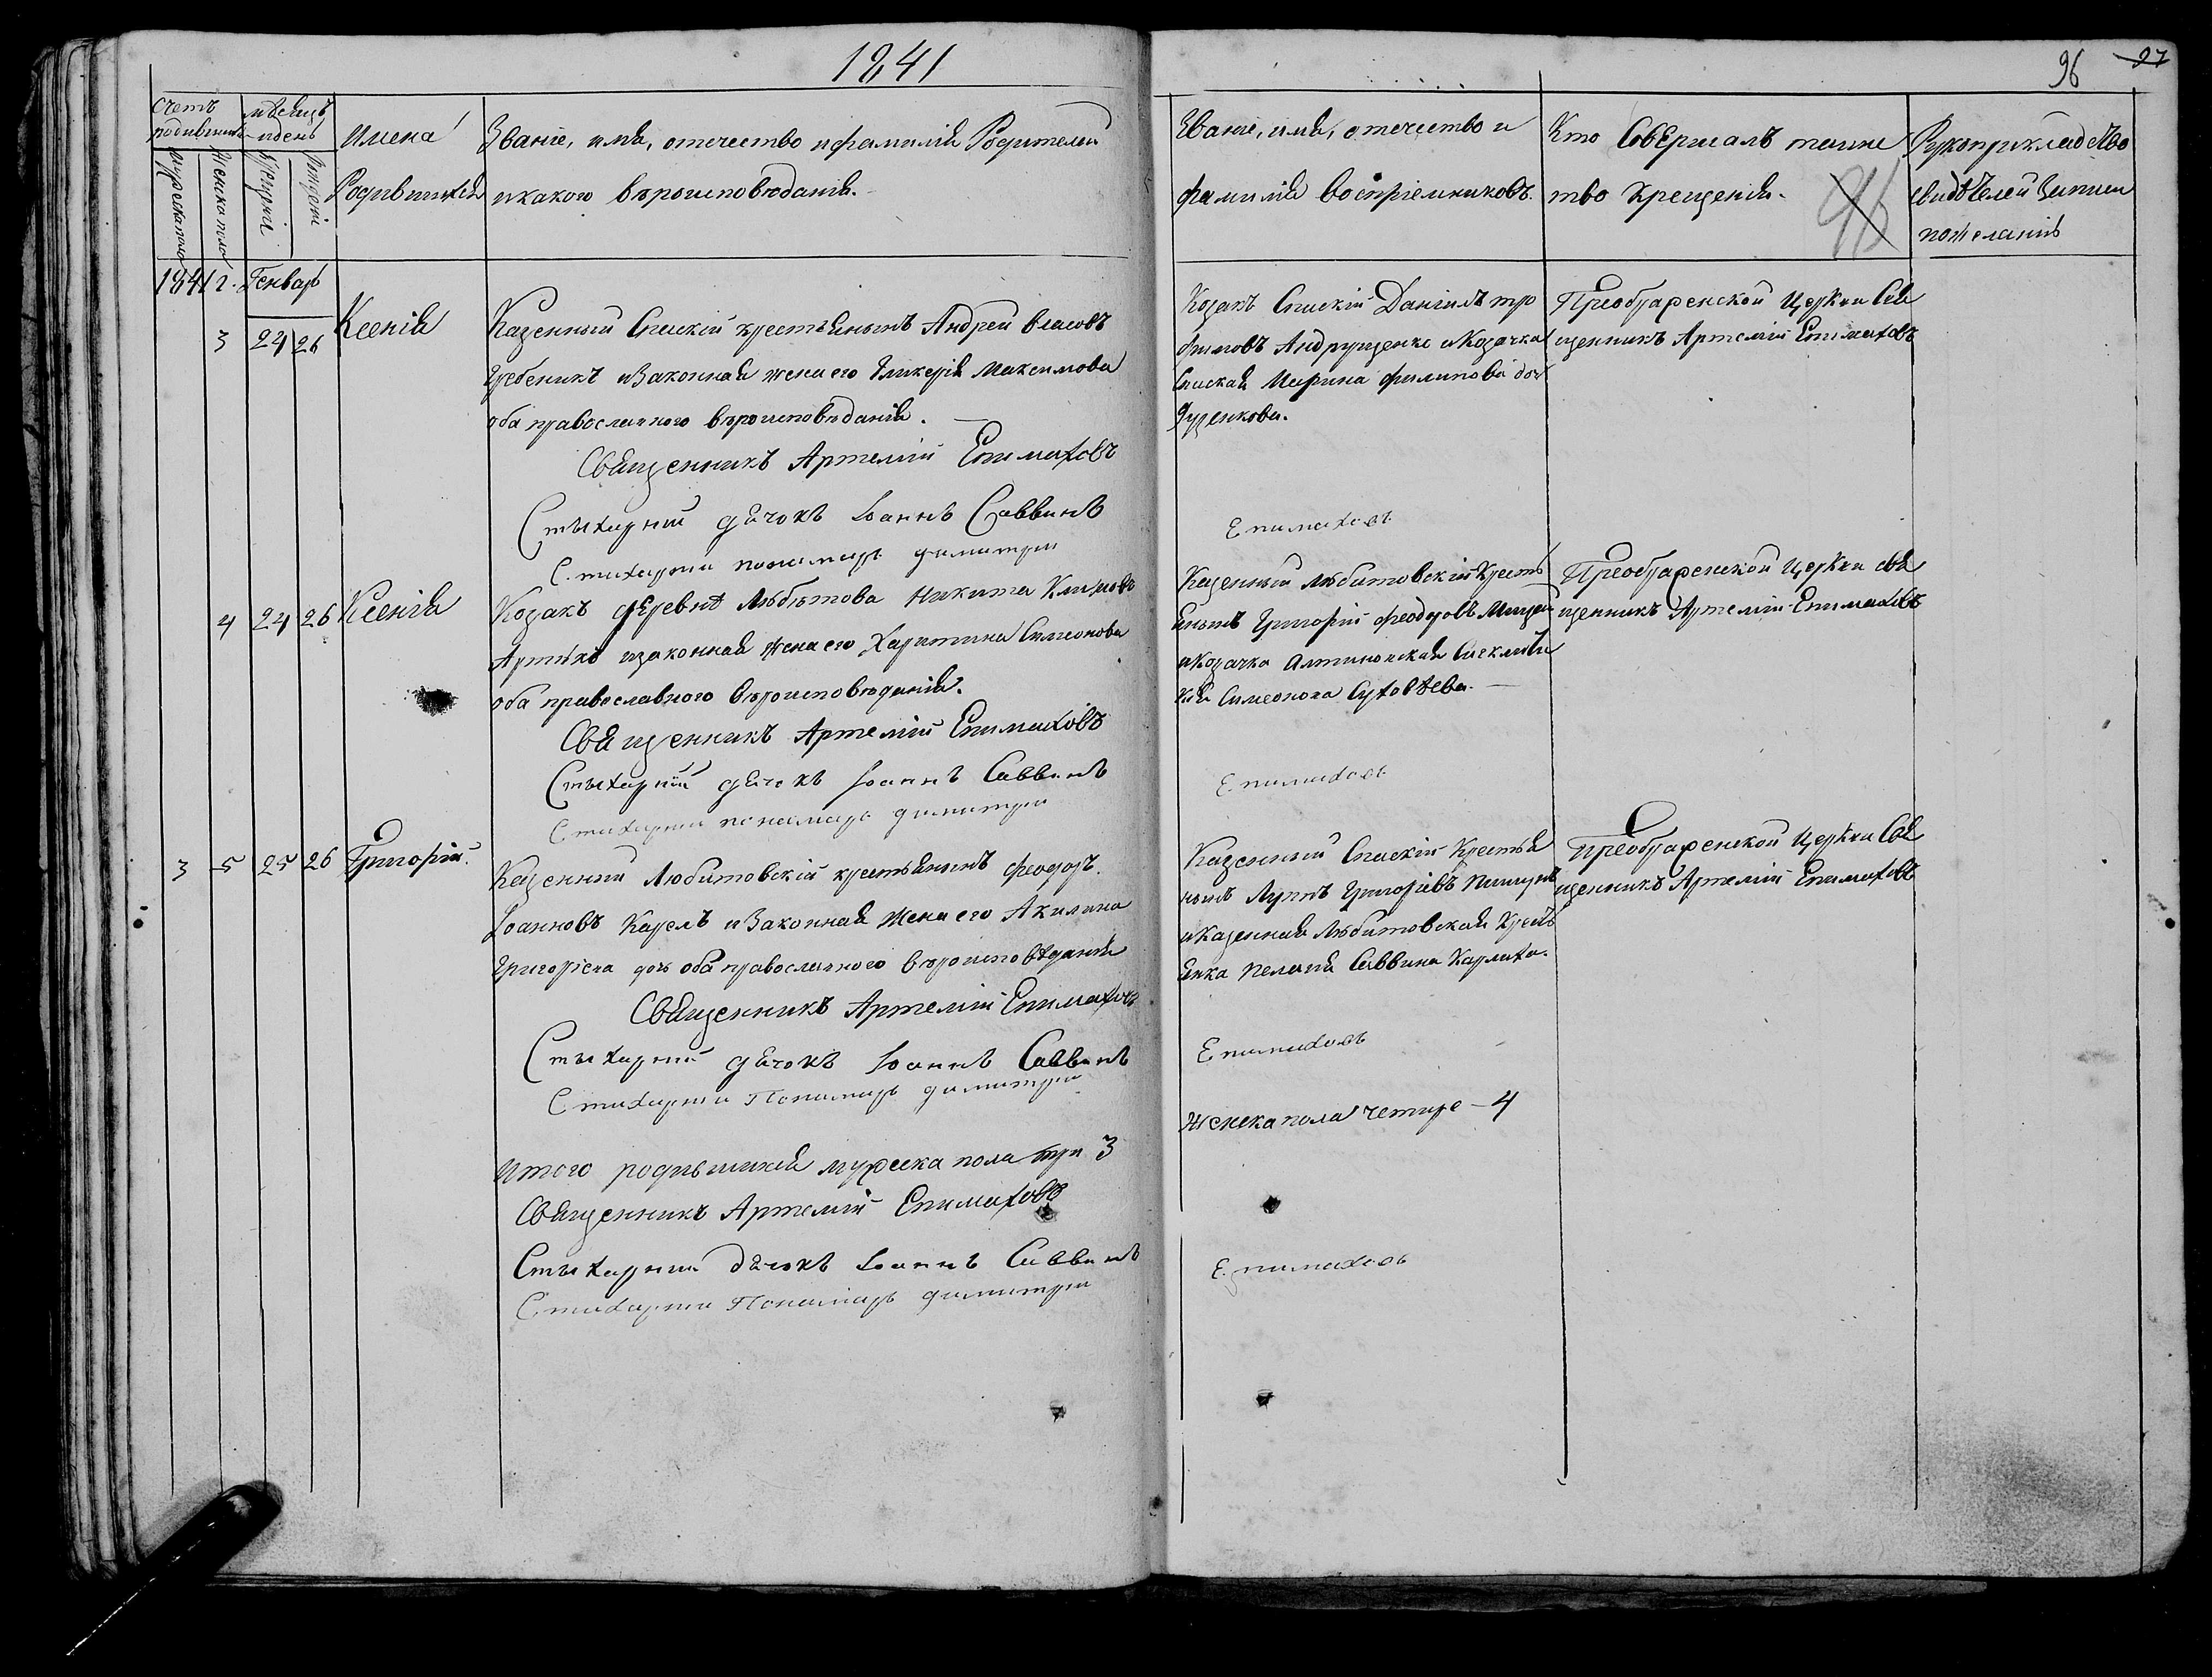 1841
96 97
Счетъ
родившихся
мѣсяцъ
и день
Имена
Родившихся
Званіе, имя, отечество и фамилія Родителей
и какого вѣроисповѣданія.
Званіе, имя, отечество и
фамилія воспріемниковъ.
Кто Совершалъ таинс
тво Крещенія.
96
Рукоприкладство
свидѣтелей записи
по желанію
мужеска пола
женска пола
1841 г. Генварь
3 24 26 Ксенія
Казенный Спаскій крестьянинъ Андрей Власовъ
Гребеникъ и Законная жена его Гликерія Максимова
оба православного вѣроисповѣданія.
Священникъ Артемій Епимаховъ
Стыхарний дячокъ Іоаннъ Саввинъ
Стихарній пономарь Димитрій
Козакъ Спаскій Даніилъ тро
фимовъ Андрущенко и Козачка
Спаская Марина Филипова доч
Епимаховъ
Преображенской Церкви Свя
щенникъ Артемій Епимаховъ
4 24 26 Ксенія
Козакъ деревнѣ Любитова Никита Климовъ
Артюхъ и законная жена его Харитина Симеонова
оба православного вѣроисповѣданія.
Священникъ Артемій Епимаховъ
Стыхарній дячокъ Іоаннъ Саввинъ
Стихарній пономарь Димитрій
Казенный Любитовскій Кресть
янинъ Григорій Феодоровъ
и Козачка Алтиновская
Симеонова Суховѣева.
Епимаховъ
Преображенской Церкви свя
щенникъ Артемій Епимаховъ
3 5 25 26 Григорій.
Казенный Любитовскій крестьянинъ Феодоръ
Іоанновъ Карелъ и Законная Жена его Акилина
Григоріева доч оба православного вѣроисповѣданія
Священникъ Артемій Епимаховъ
Стыхарный дячокъ Іоаннъ Саввинъ
Стихарній Пономарь Димитрій
Казенный Спаскій Крестья
нинъ Луппъ Григоріевъ
и Казенная Любитовская Крест
янка Пелагія Саввина
Епимаховъ
Преображенской Церкви Свя
щенникъ Артемій Епимаховъ
Итого родившихся мужеска пола три 3
Женска пола четире - 4
Священникъ Артемій Епимаховъ
Стыхарный дячокъ Іоаннъ Саввинъ
Стихарній Пономарь Димитрій
Епимаховъ